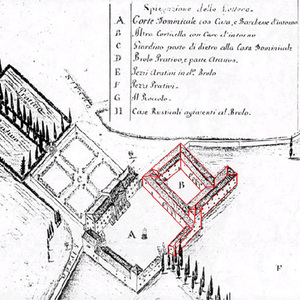 Spiegazione delle Lettere.
A Corte Dominicale con Casa, e Barchesse d'intorno
B Altra Corticella con Case d'intorno
C Giardino posto di dietro alla Casa Dominicale
D Brolo Prativo, e parte Arativo.
E Pezzi Arativi in d.º Brolo
F Pezzi Prativi.
G Al Roccolo.
H Case Rusticali agiacenti al Brolo.
C
B
A
F